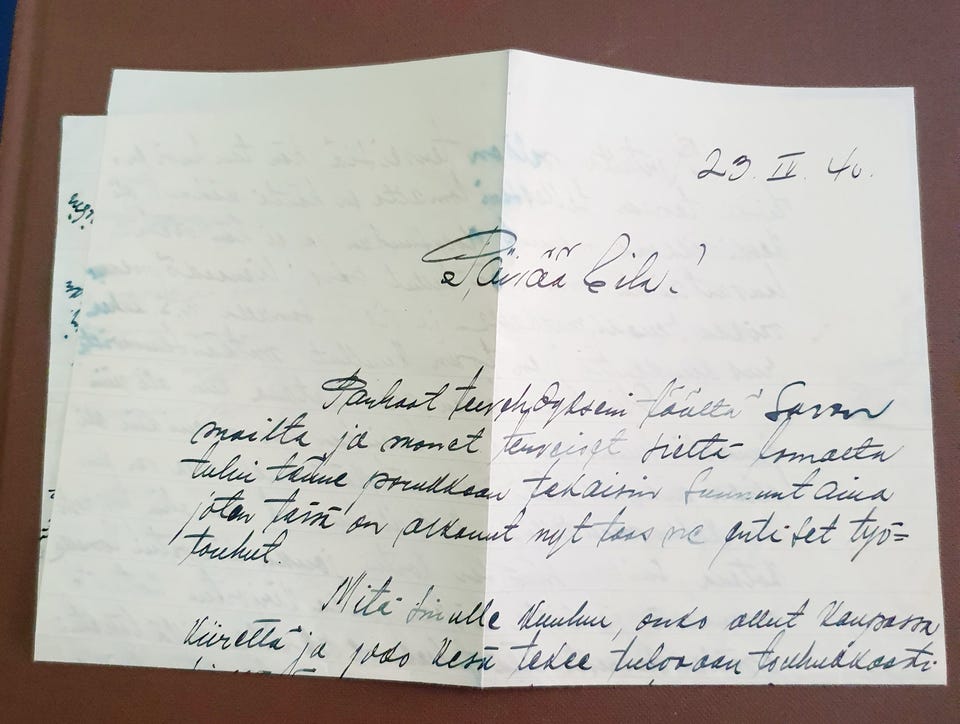 23. IV. 40.
Päivää Eila!
Parhaat tervehdykseni täältä Savon
mailta ja monet terveiset sieltä lomalta
tulin tänne porukkaan takaisin Sunnuntaina
joten tässä on alkanut nyt taas ne entiset työ=
touhut.
Mitä Sinulle kuuluu, onko ollut kaupassa
kiirettä ja joko kesä tekee tuloaan touhukkaasti